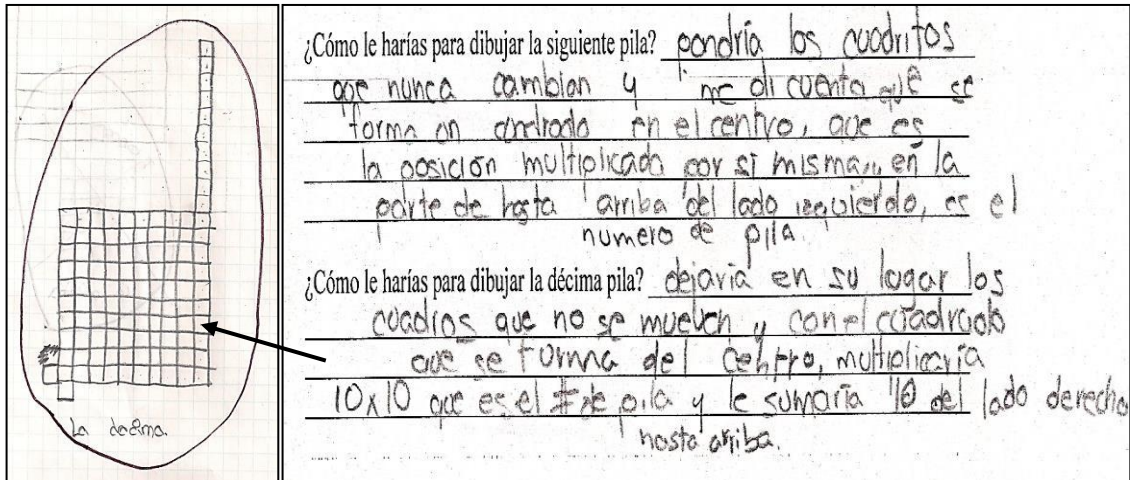 La decima.
¿Cómo le harías para dibujar la siguiente pila? pondría los cuadritos
que nunca cambian y me di cuenta que se
forma un cuadrado en el centro, que es
la posición multiplicada por si misma, en la
parte de hasta arriba del lado izquierdo, es el
numero de pila.
¿Cómo le harías para dibujar la décima pila? dejaria en su lugar los
cuadros que no se mueven y con el cuadrado
que se forma del centro, multiplicaría
10x10 que es el # de pila y le sumaría 10 del lado derecho
hasta arriba.